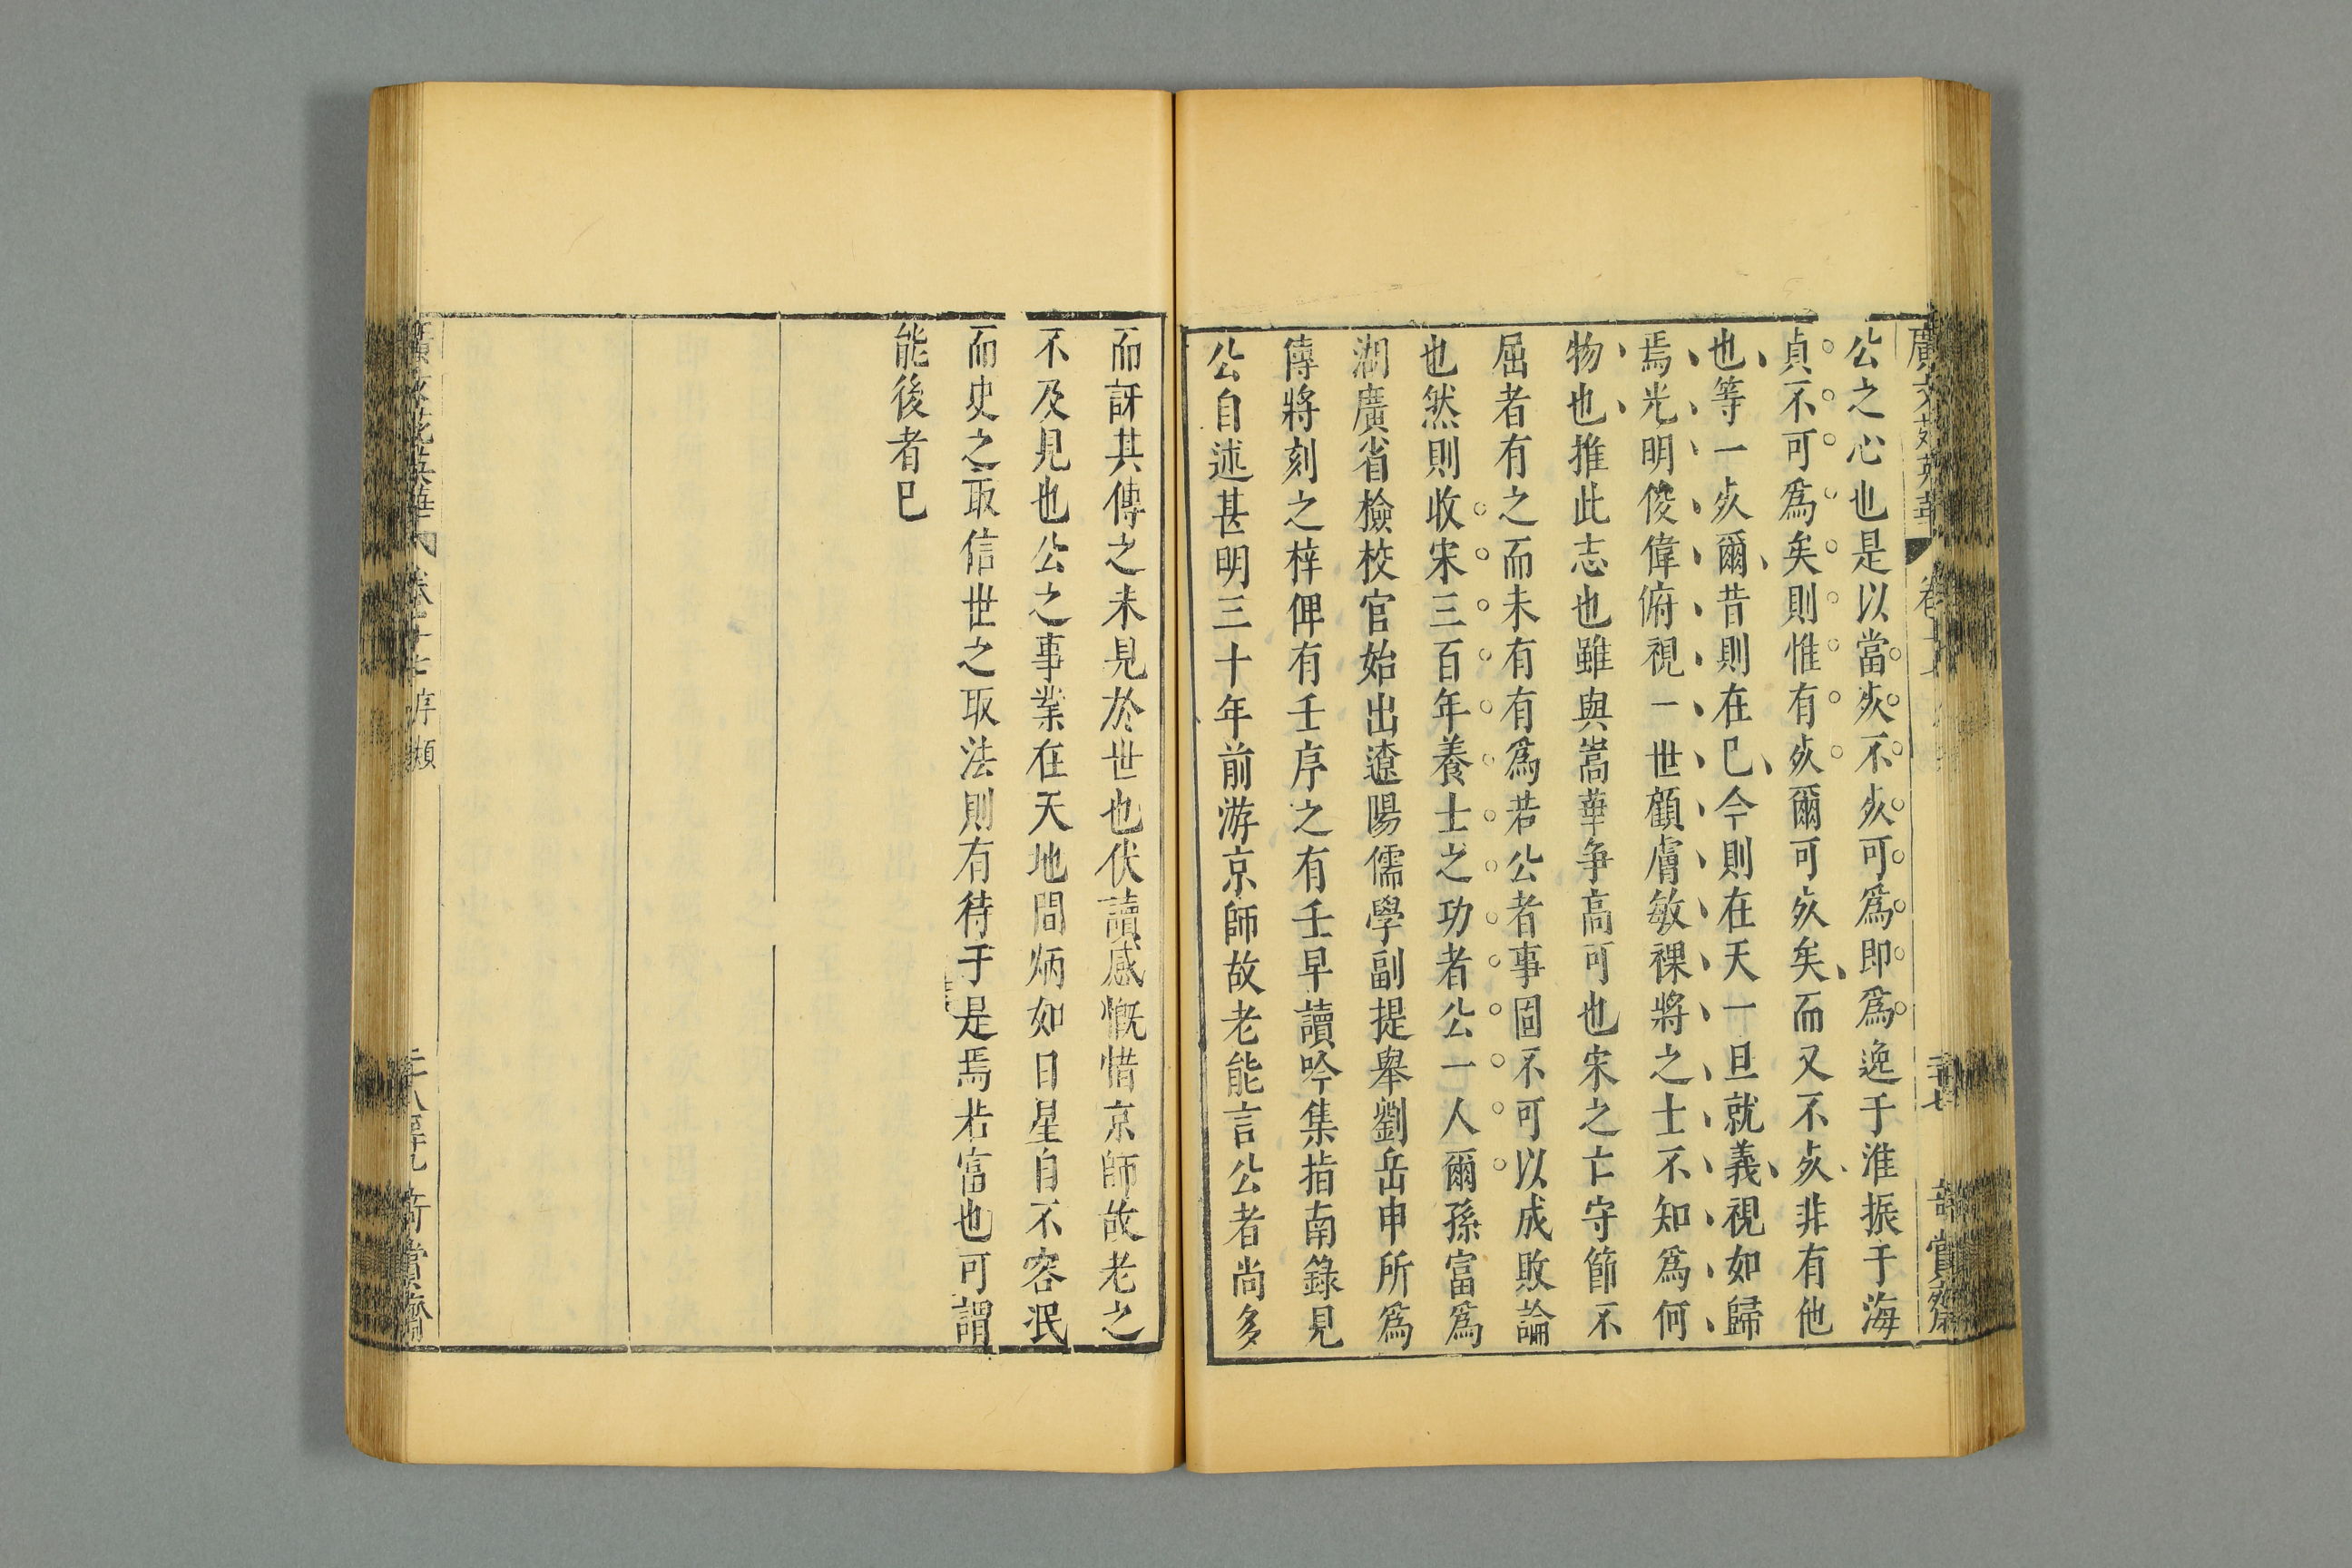 公之心也是以當㱔不㱔可爲即爲逸于淮振于海
貞不可爲矣則惟有㱔爾可㱔矣而又不㱔非有他
也等一㱔爾昔則在已今則在天一旦就義視如歸
焉光明俊偉俯視一世顧膚敏祼將之士不知爲何
物也推此志也雖與嵩華争高可也宋之亡守節不
屈者有之而未有有爲若公者事固不可以成敗論
也然則收宋三百年養士之功者公一人爾孫富爲
湖廣省檢校官始出遼陽儒學副提舉劉岳申所爲
傳將刻之梓俾有壬序之有壬早讀吟集指南錄見
公自述甚明三十年前游京師故老能言公者尚多
而訝其傳之未見於世也伏讀感慨惜京師故老之
不及見也公之事業在天地間炳如日星自不容泯
而史之取信世之取法則有待于是焉若富也可謂
能後者已